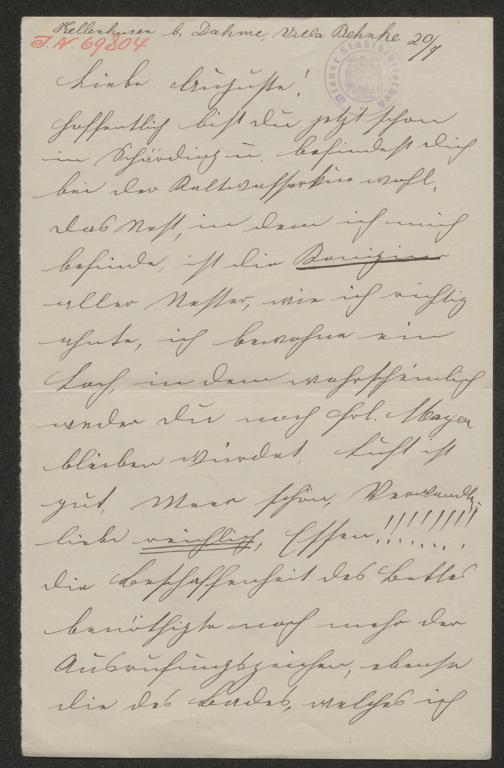 Kellenhusen b. Dahme, Villa Behnke 20/7
I.N. 69804
Wiener Stadtbibliothek
Liebe Auguste!
Hoffentlich bist Du jetzt schon
in Schärding u. befindest Dich
bei der Kaltwasserkur wohl.
Das Nest, in dem ich mich
befinde, ist die Königin
aller Nester, wie ich richtig
ahnte, ich bewohne ein
Loch, in dem wahrscheinlich
weder Du noch Frl. Mayer
bleiben würdet. Luft ist
gut, Meer schön, Verwandten-
liebe reichlich, Essen!!!!!!!!!
die Beschaffenheit des Bettes
benöthigte noch mehr der
Ausrufungszeichen, ebenso
die des Bades, welches ich